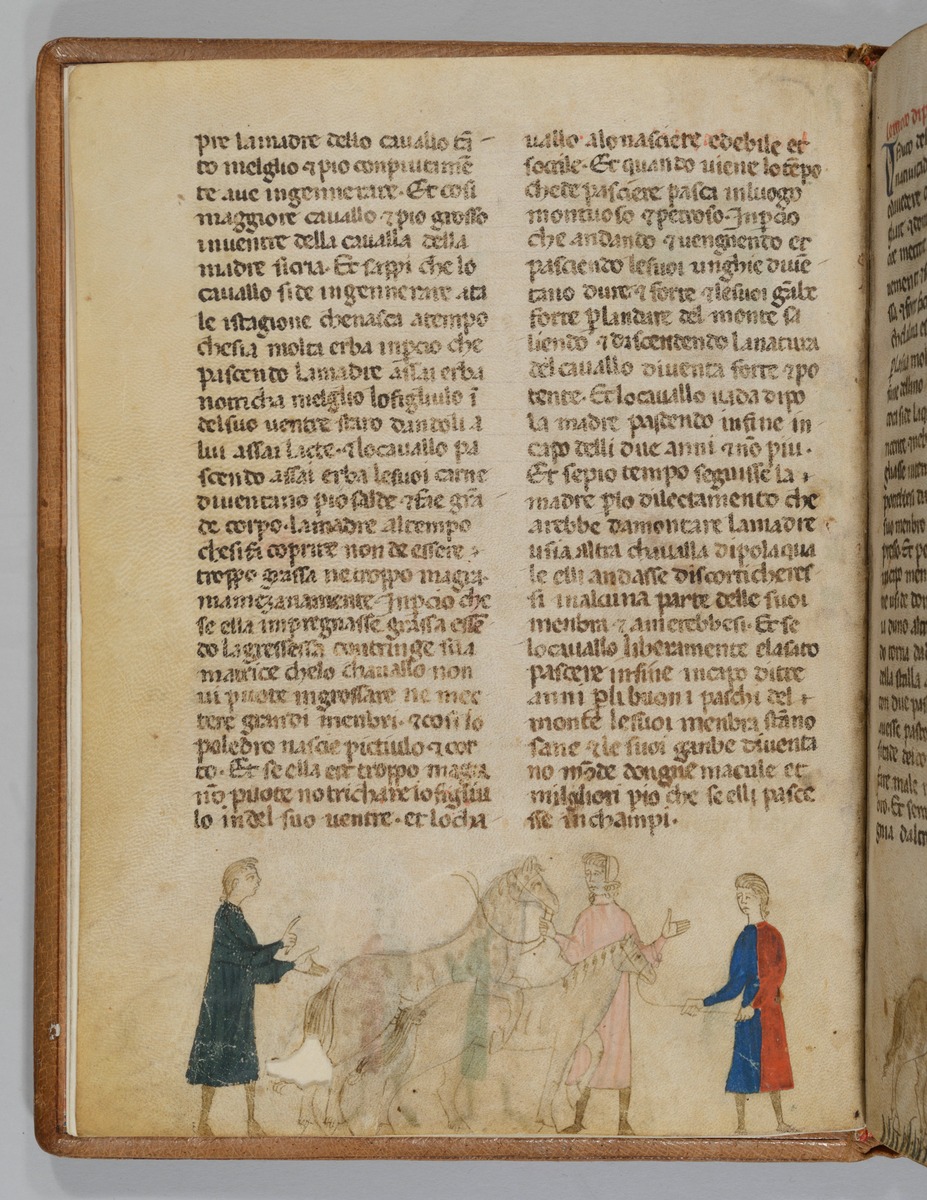 pre lamadre dello cauallo cñ
to melglio ⁊ pio conpiutamē
te aue ingennerare. Et cosi
maggiore cauallo ⁊ pio grosso
inuentre della caualla della
madre sicria. Et sappi che lo
cauallo side ingennerare ata
le istagione chenasca atempo
chesia molta erba inpcio che
pascendo lamadre assai erba
notricha melglio lofigliulo ī
delsuo uentre stato dandoli a
lui assai lacte. ⁊ locauallo pa
scendo assai erba lesuoi carne
diuentano pio salde ⁊ fae grā
de corpo. lamadre altempo
chesi fa coprire non de essere
troppo grassa ne troppo magra.
mamezanamente. Inpcio che
se ella impregnasse grassa essē
do la gressessa contringe sua
matrice chelo chauallo non
ui puote ingrossare ne mec
tere grandi menbri. ⁊ cosi lo
poledro nascie pictiulo ⁊ cor
to. Et se ella ett troppo magra
nō puote notrichare lo figliu
lo indel suo uentre. et locha
uallo alonasciere edebile et
soctile. Et quando uiene lo tēpo
chede pasciere pasca inluogo
montuoso ⁊ petroso. Inpcio
che andando ⁊ uengnendo et
pasciendo lesuoi unghie diuē
tano dure ⁊ forte ⁊ lesuoi gābe
forte p landare del monte sa
liendo ⁊ discendendo lanatura
del cauallo diuenta forte ⁊ po
tente. Et locauallo uada dipo
la madre pascendo infine in
capo delli due anni ⁊ nō piu.
Et sepio tempo seguisse la
madre plo dilectamento che
arebbe damontare lamadre
usia altra chaualla dipolaqua
le elli andasse discorticheret
si inalcuna parte delle suoi
menbra ⁊ anierebbesi. Et se
locauallo liberamente elasato
pascere infine incapo ditre
anni pli buoni paschi del
monte lesuoi menbra stāno
sane ⁊ le suoi ganbe diuenta
no mōde dongne macule et
milgliori pio che se elli pasce
sse in champi.